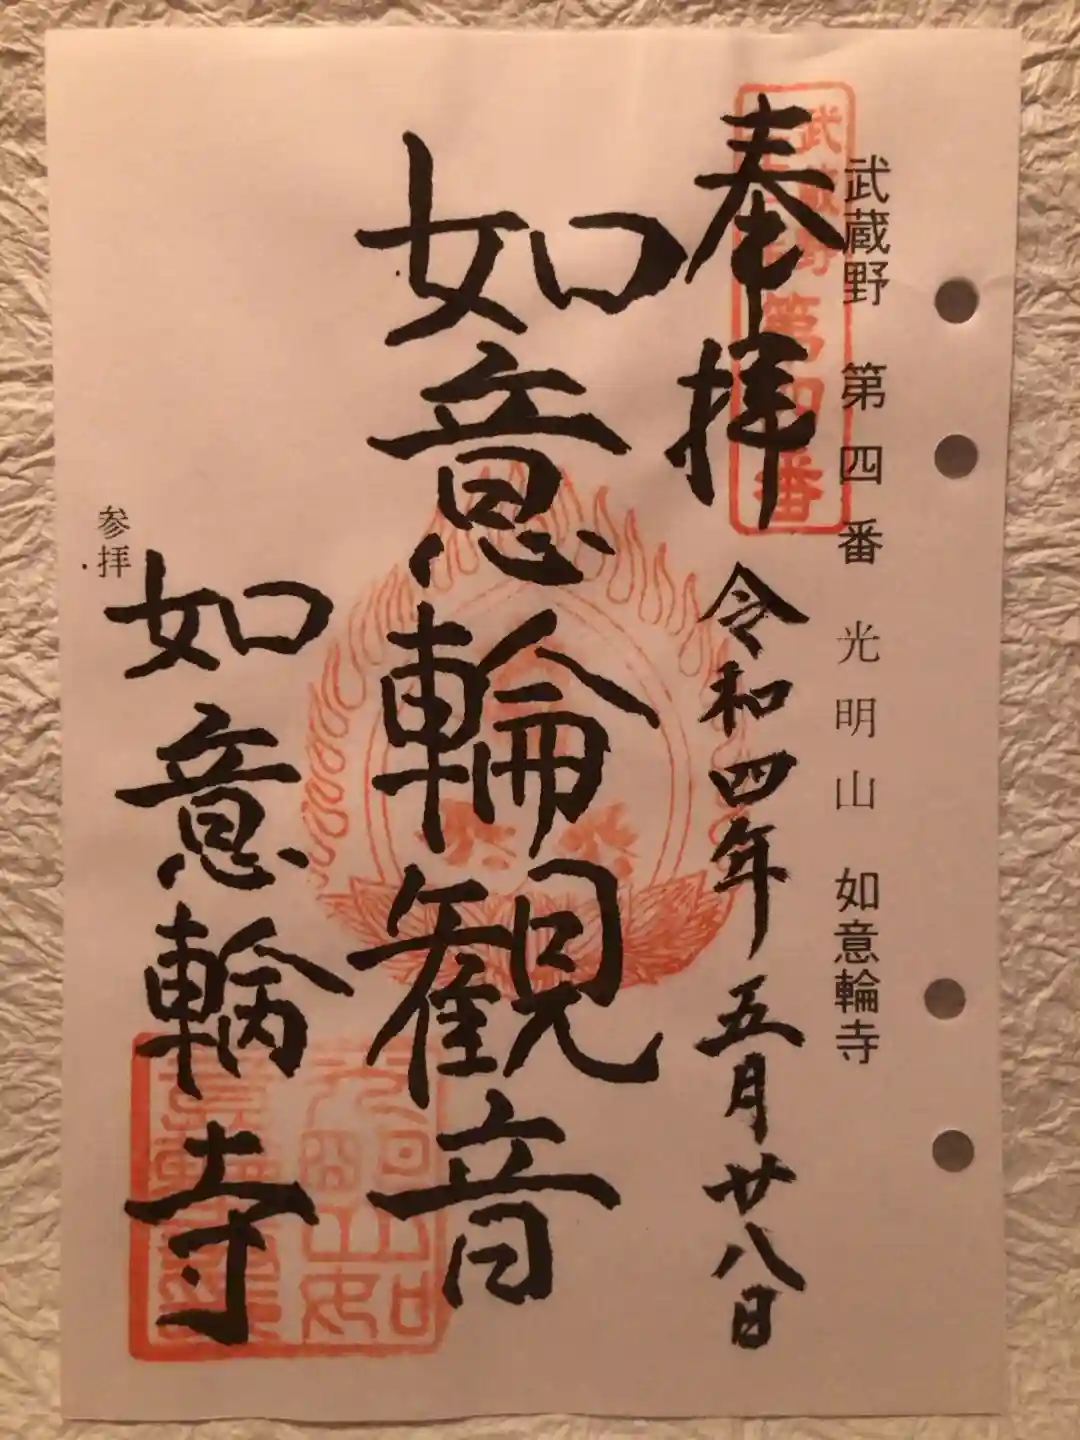 武蔵野 第四番 光明山 如意輪寺
武蔵野
第四番
奉拝 令和四年五月廿八日
如意輪観音
参拝
如意輪寺